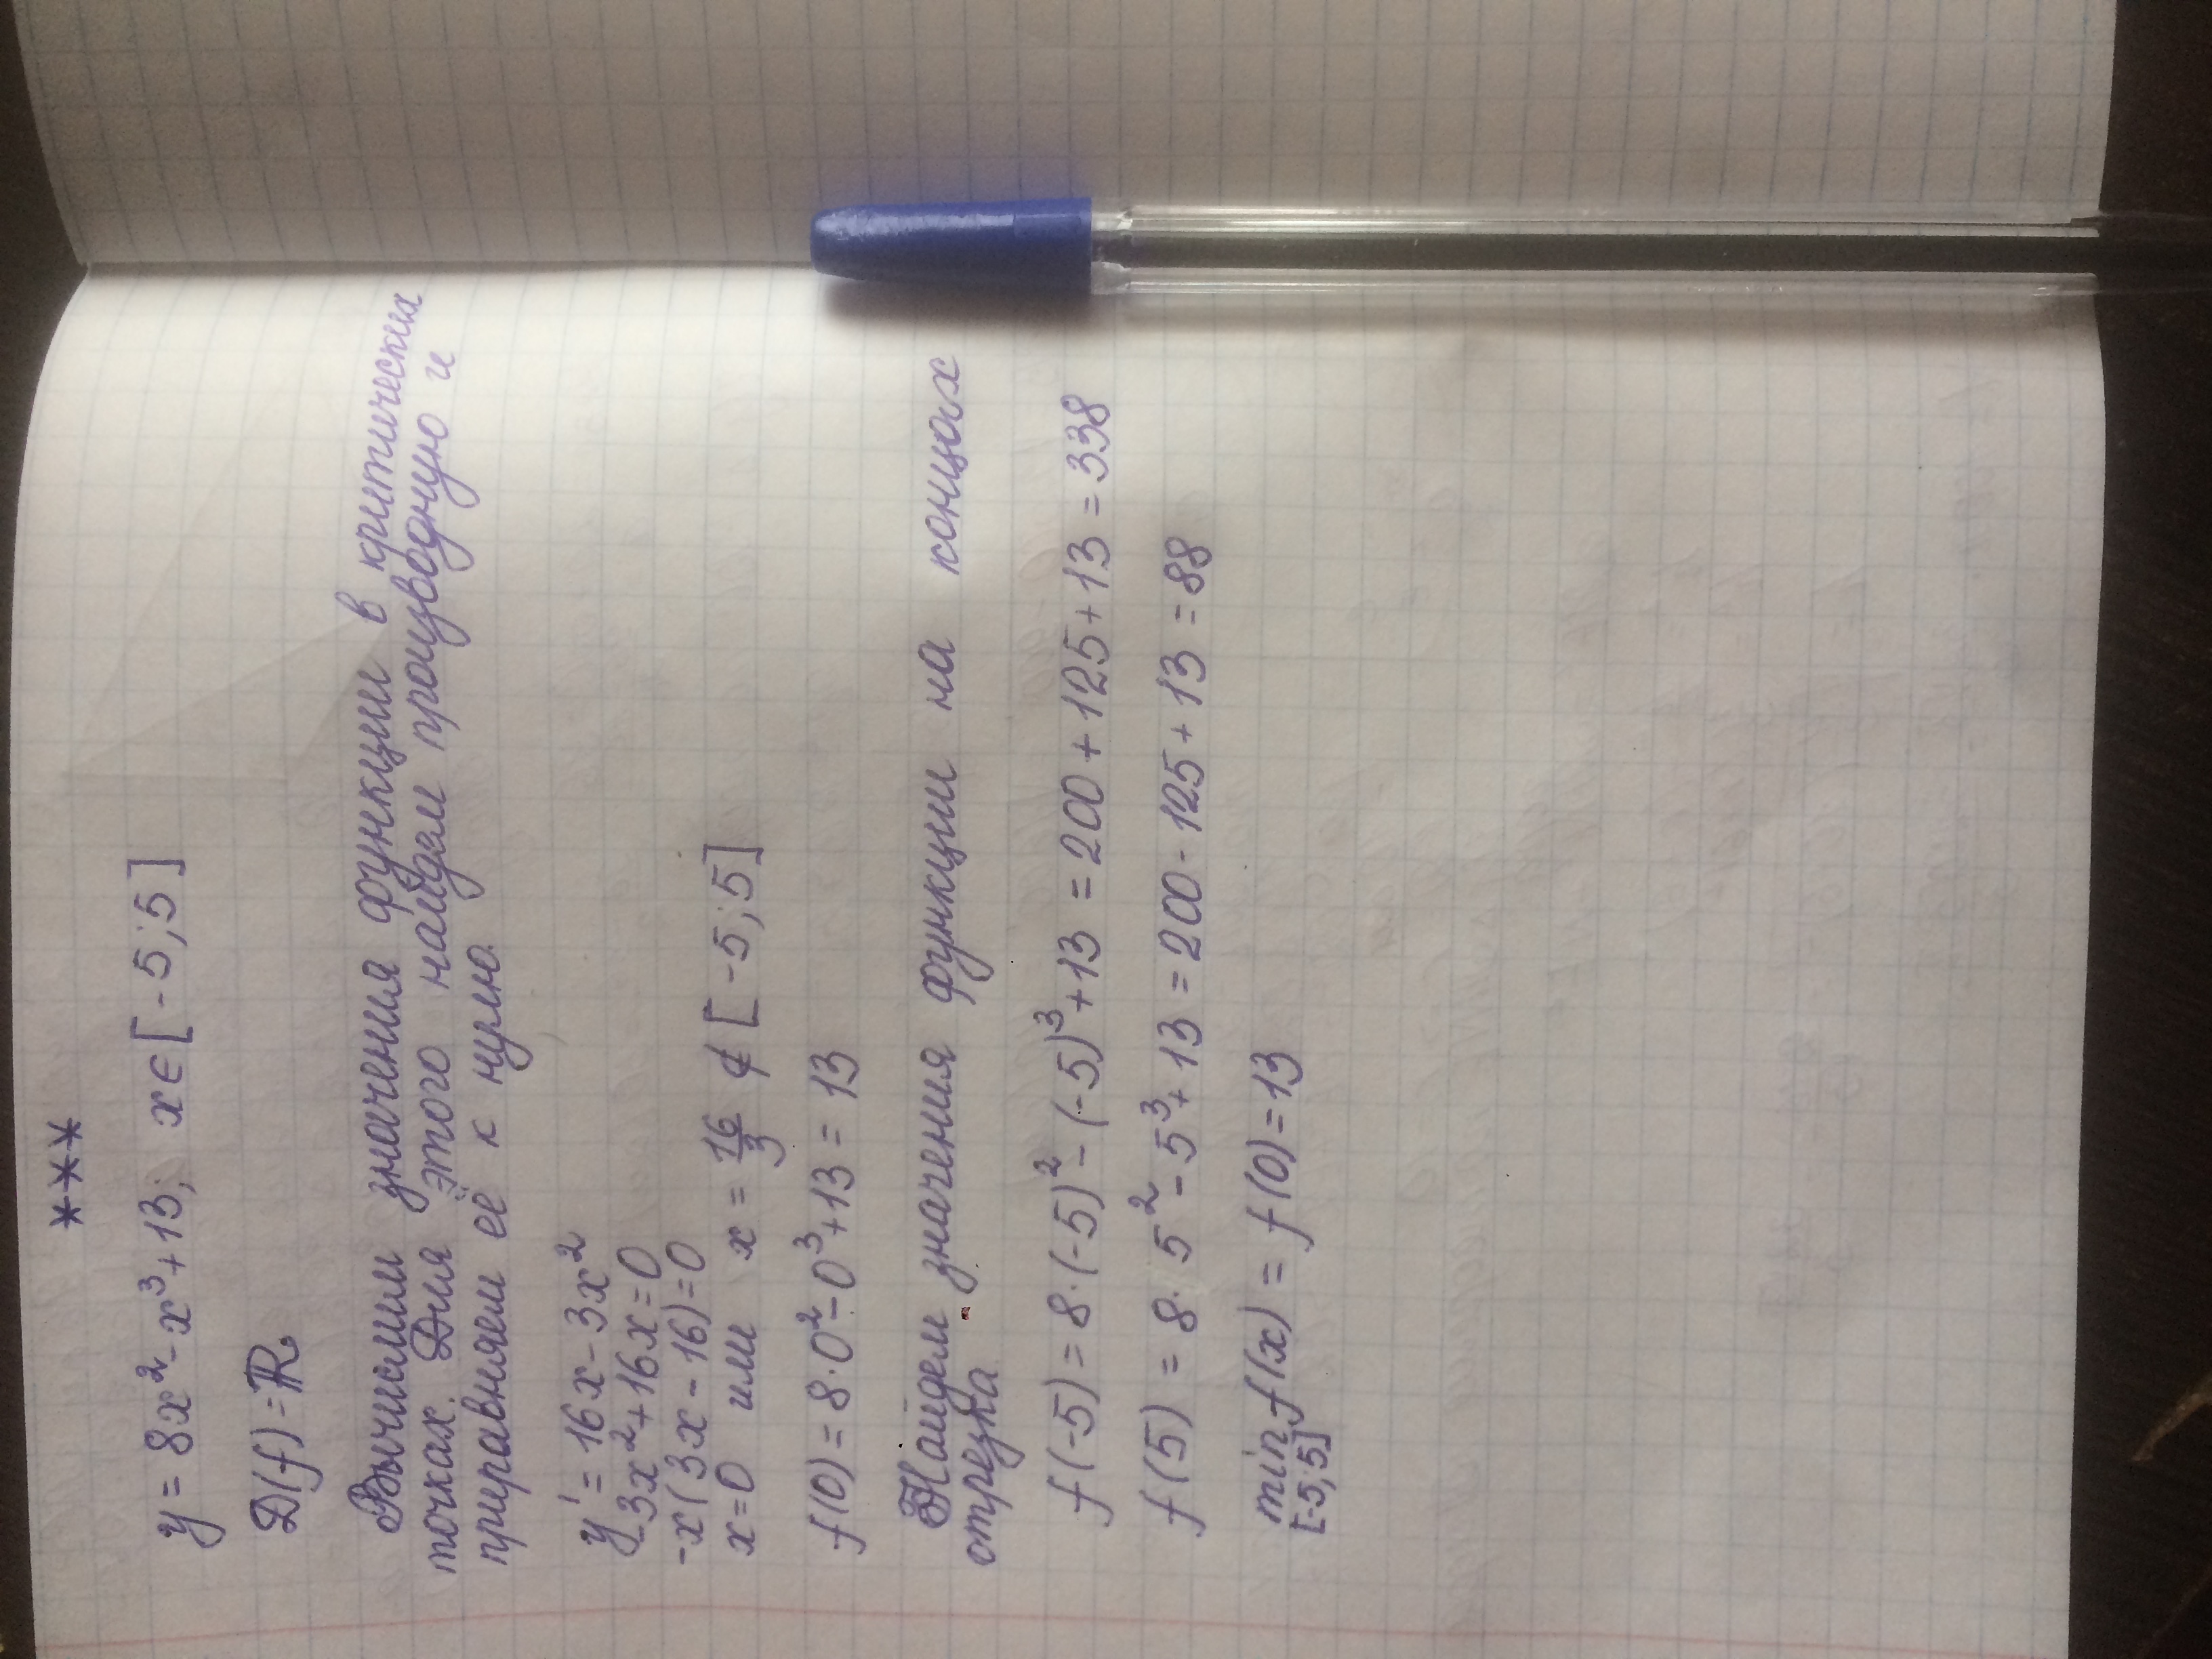 ***
y = 8x² - x³ + 13; x ∈ [-5; 5]
D(f) = ℝ
Вычислим значения функции в критических
точках. Для этого найдем производную и
приравняем её к нулю.
y' = 16x - 3x²
-3x² + 16x = 0
-x(3x - 16) = 0
x = 0 или x = 16/3 ∉ [-5; 5]
f(0) = 8·0² - 0³ + 13 = 13
Найдем значения функции на концах
отрезка
f(-5) = 8·(-5)² - (-5)³ + 13 = 200 + 125 + 13 = 338
f(5) = 8·5² - 5³ + 13 = 200 - 125 + 13 = 88
min f(x) = f(0) = 13
[-5; 5]